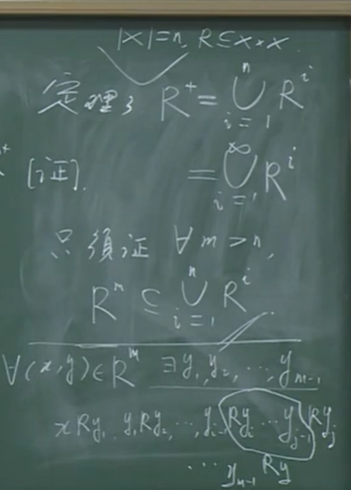 |X|=n, R⊆X×X
定理3 R⁺=⋃ᵢ₌₁ⁿ Rⁱ
[证]. =⋃ᵢ₌₁^∞ Rⁱ
只须证 ∀m>n,
Rᵐ⊆⋃ᵢ₌₁ⁿ Rⁱ
∀(x,y)∈Rᵐ ∃y₁,y₂,…,yₘ₋₁
xRy₁ y₁Ry₂,…,yᵢ₋₁Ryᵢ…yⱼ₋₁Ryⱼ
…yₘ₋₁Ry